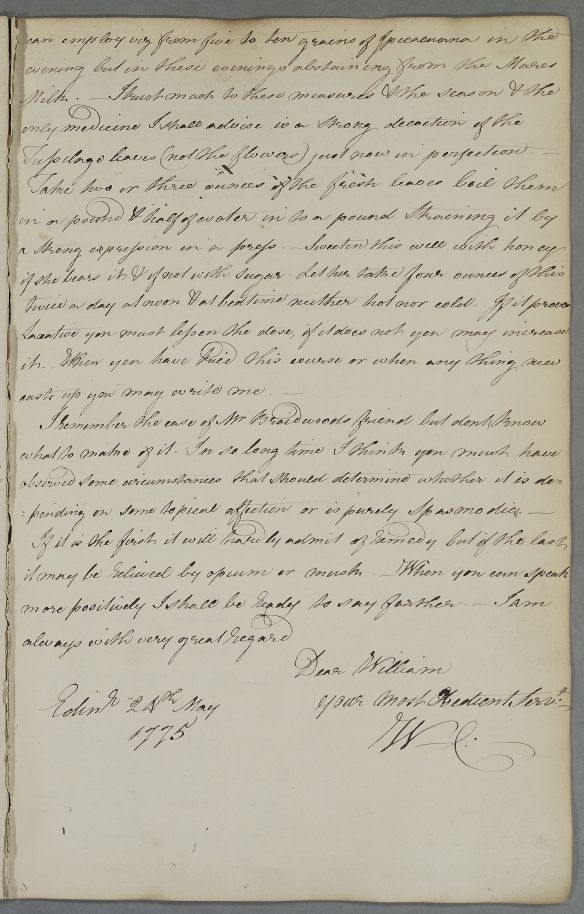 can employ viz from five to ten grains of Ipecacuana in the
evening but in these evenings abstaining from the Mares
Milk. — I trust much to these measures & the season & the
only medicine I shall advise is a Strong decoction of the
Tussilago leaves (not the flowers) just now in perfection. —
Take two or three ounces of the fresh leaves boil them
in a pound & half of water in to a pound Straining it by
a Strong expression in a press. — Sweeten this well with honey
if she bears it & if not with Sugar. Let her take four ounces of this
twice a day at noon & at bedtime neither hot nor cold. If it proves
Laxative you must lessen the dose, if it does not you may increase
it. When you have tried this course or when any thing new
casts up you may write me. —
I remember the case of Mr Braidwoods friend but dont know
what to make of it. In so long time I think you must have
observed some circumstances that should determine whether it is de=
=pending on some topical affection or is purely Spasmodic. —
If it is the first it will hardly admit of remedy but if the last
it may be relieved by opium or musk. — When you can speak
more positively I shall be ready to say farther. — I am
always with very great regard
Dear William
your most Obedient Servt.
Edinr 28th May
1775
WC.